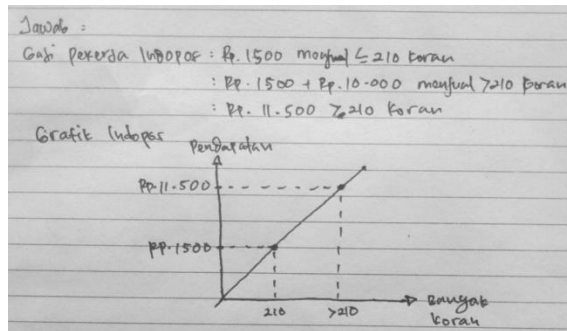 Jawab :
Gaji Pekerja Indopos : Rp. 1500 menjual ≤ 210 koran
: Rp. 1500 + Rp. 10.000 menjual >210 koran
: Rp. 11.500 ≥ 210 koran
Grafik Indopos
Pendapatan
Rp. 11.500
Rp. 1500
210
>210
Banyak
koran